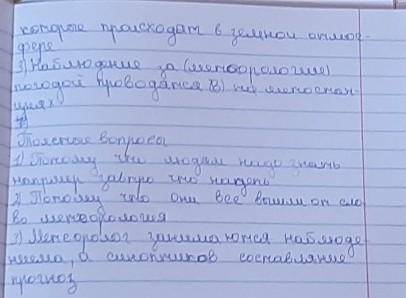 которые происходят в земной атмос-
фере
3) Наблюдение за (метеорологие)
погодой проводятся (в) на метеостан-
циях
Толстые вопросы
1) Потому что людям надо знать
например завтро что надеть
2) Потому что они все вышли от сло
во метеорология
3) Метеоролог занимаются наблюде-
нием, а синоптиков составляние
прогноз